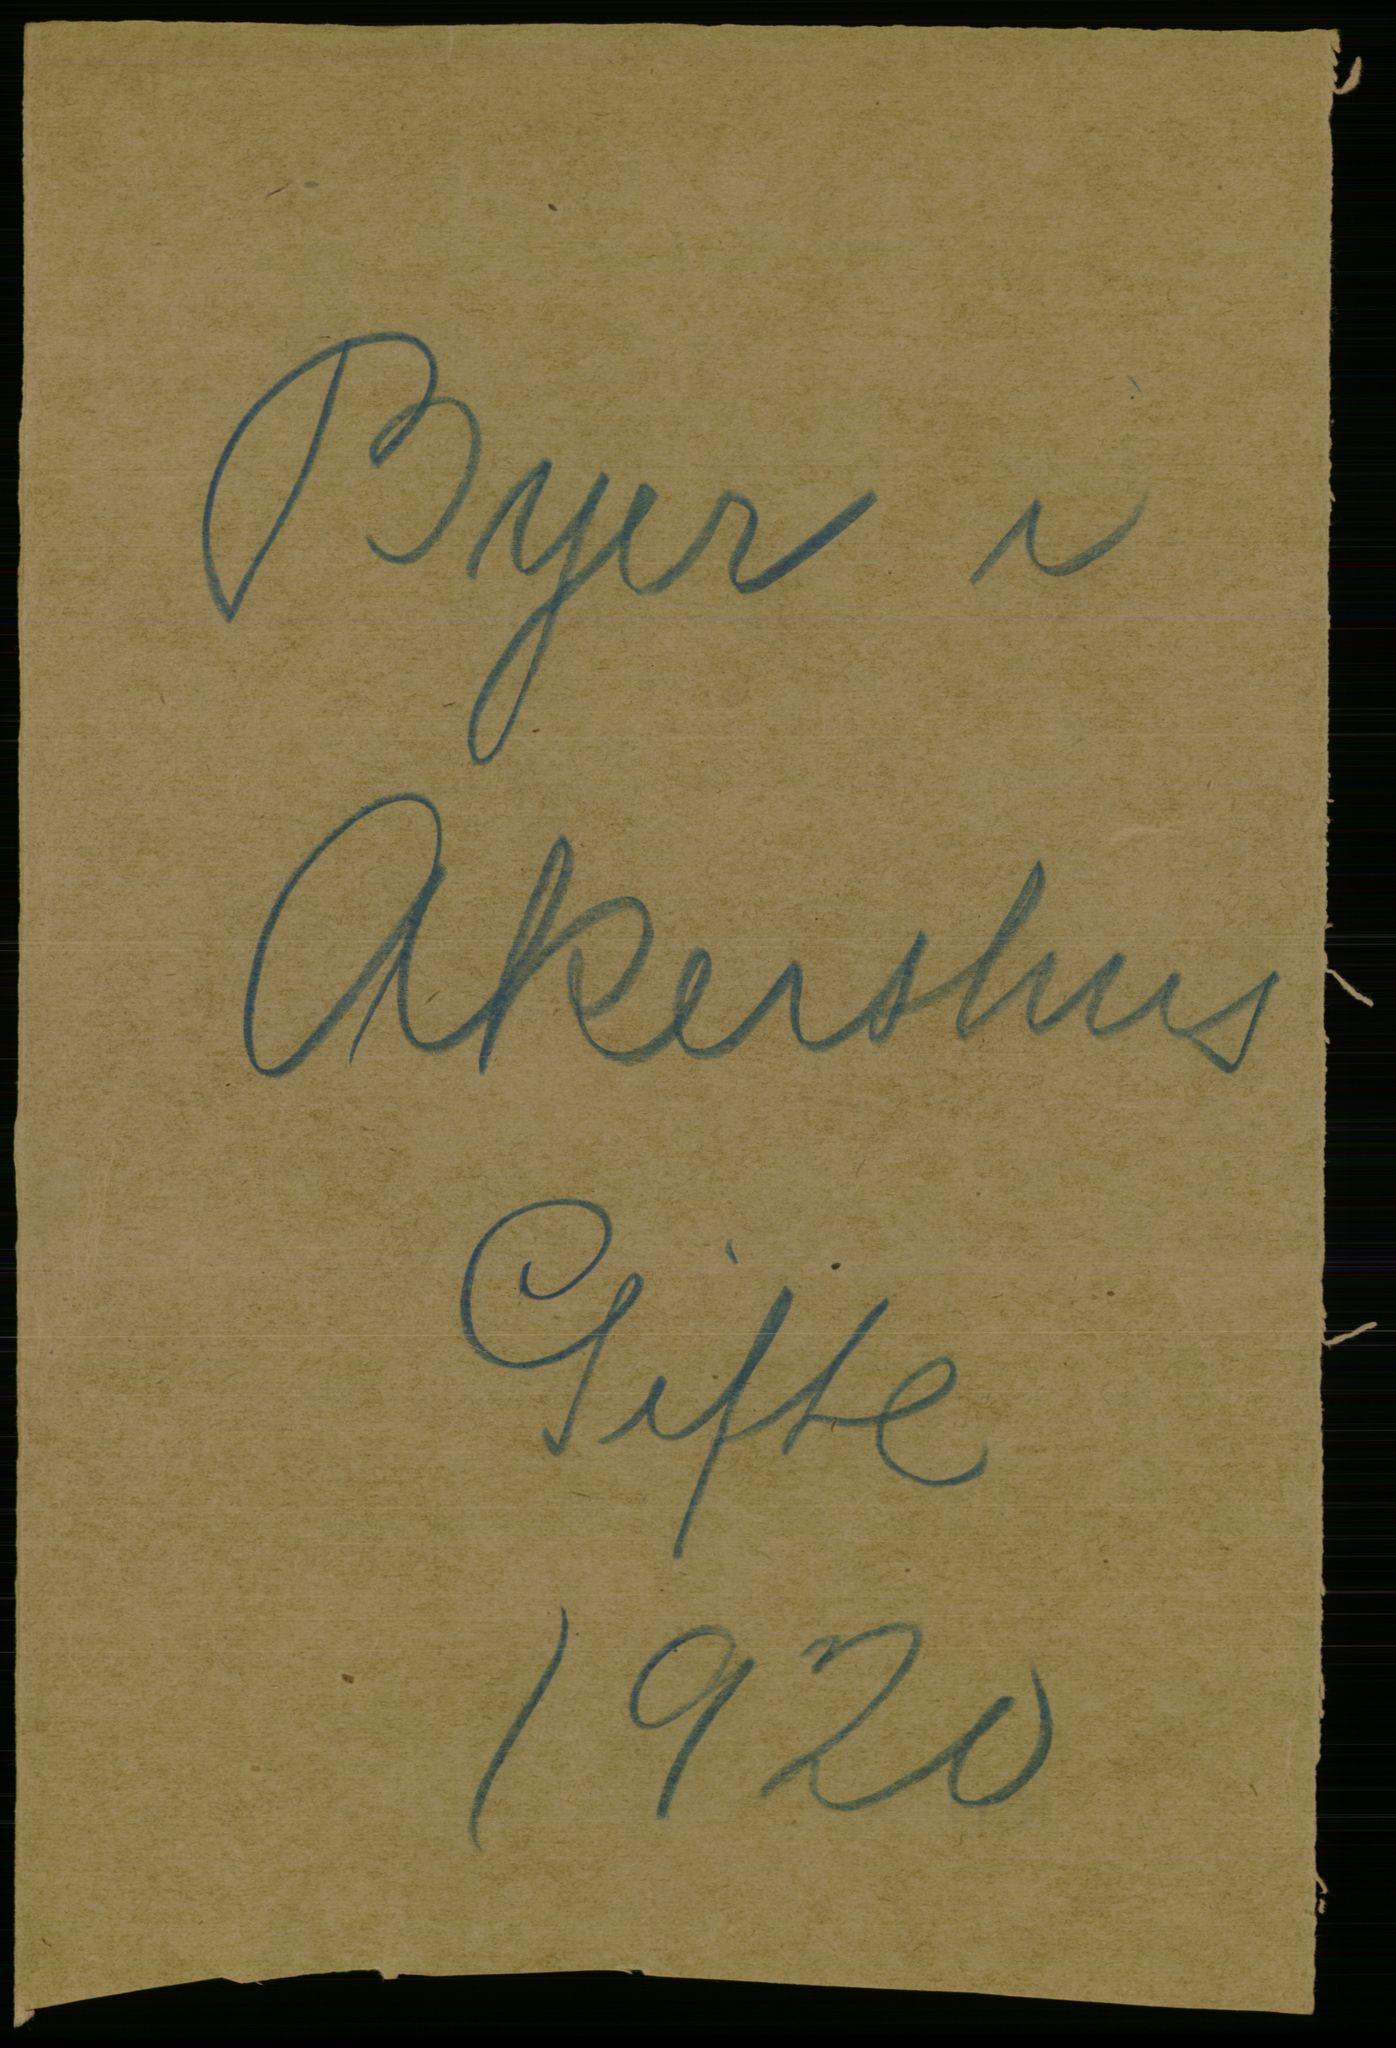 Byer i
Akershus
Gifte
1920